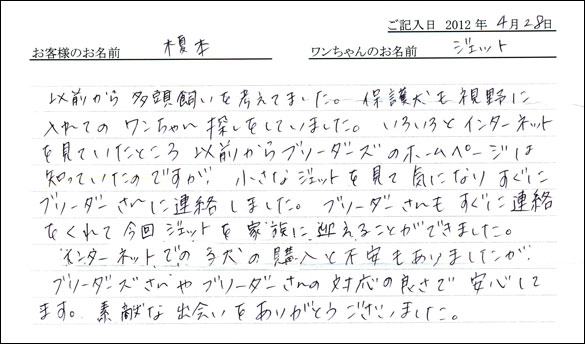 ご記入日 2012年 4月 28日
お客様のお名前 榎本 ワンちゃんのお名前 ジェット
以前から 多頭飼いを考えてました。 保護犬も視野に
入れての ワンちゃん 探しをしていました。 いろいろと インターネット
を見ていたところ 以前から ブリーダーズ のホームページは
知っていたのですが 小さなジェットを見て 気になり すぐに
ブリーダーさんに連絡しました。 ブリーダーさんも すぐに連絡
をくれて 今回 ジェットを 家族に迎えることができました。
インターネットでの 子犬の 購入と 不安もありましたが、
ブリーダーズさんや ブリーダーさんの 対応の良さで 安心して
ます。 素敵な 出会いを ありがとうございました。